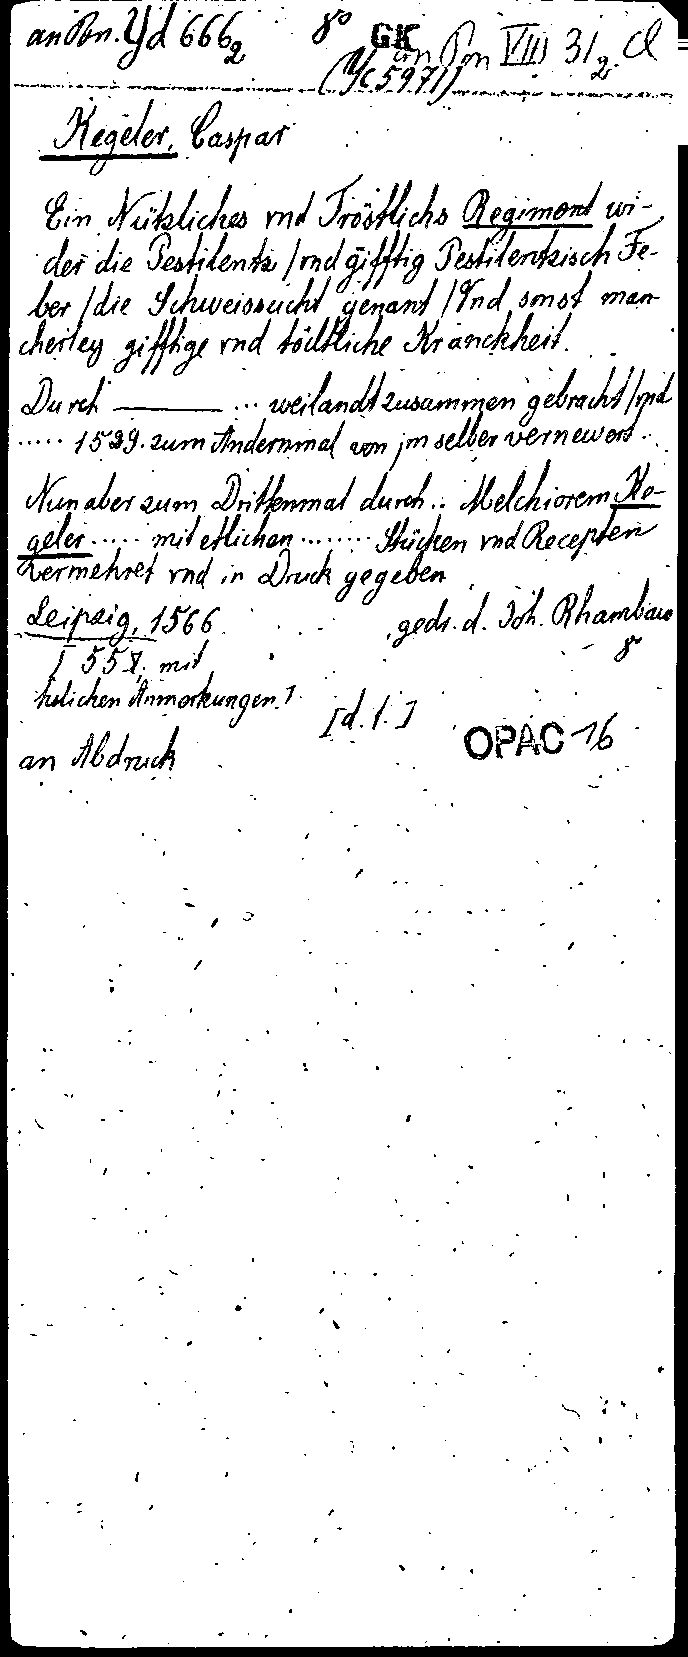 an Pon. Yd 666 2 8° GK an Pon VIII 31 2. a
(Yc 5971)
Kegeler, Caspar
Ein Nützliches vnd Tröstlichs Regiment wi-
der die Pestilentz / vnd gifftig Pestilentzisch Fe-
ber / die Schweissucht genant / Vnd sonst man-
cherley gifftige vnd tödtliche Kranckheit.
Durch ——— ... weilandt zusammen gebracht / vnd
..... 1529. zum Andernmal von jm selber vernewert..
Nun aber zum Drittenmal durch .. Melchiorem Ke-
geler ..... mit etlichen ....... Stücken vnd Recepten
vermehret vnd in Druck gegeben
Leipzig, 1566 gedr. d. Joh. Rhambaw
8
[ 55 mit
Anmerkungen]
[d. l.]
an Abdruck OPAC 16